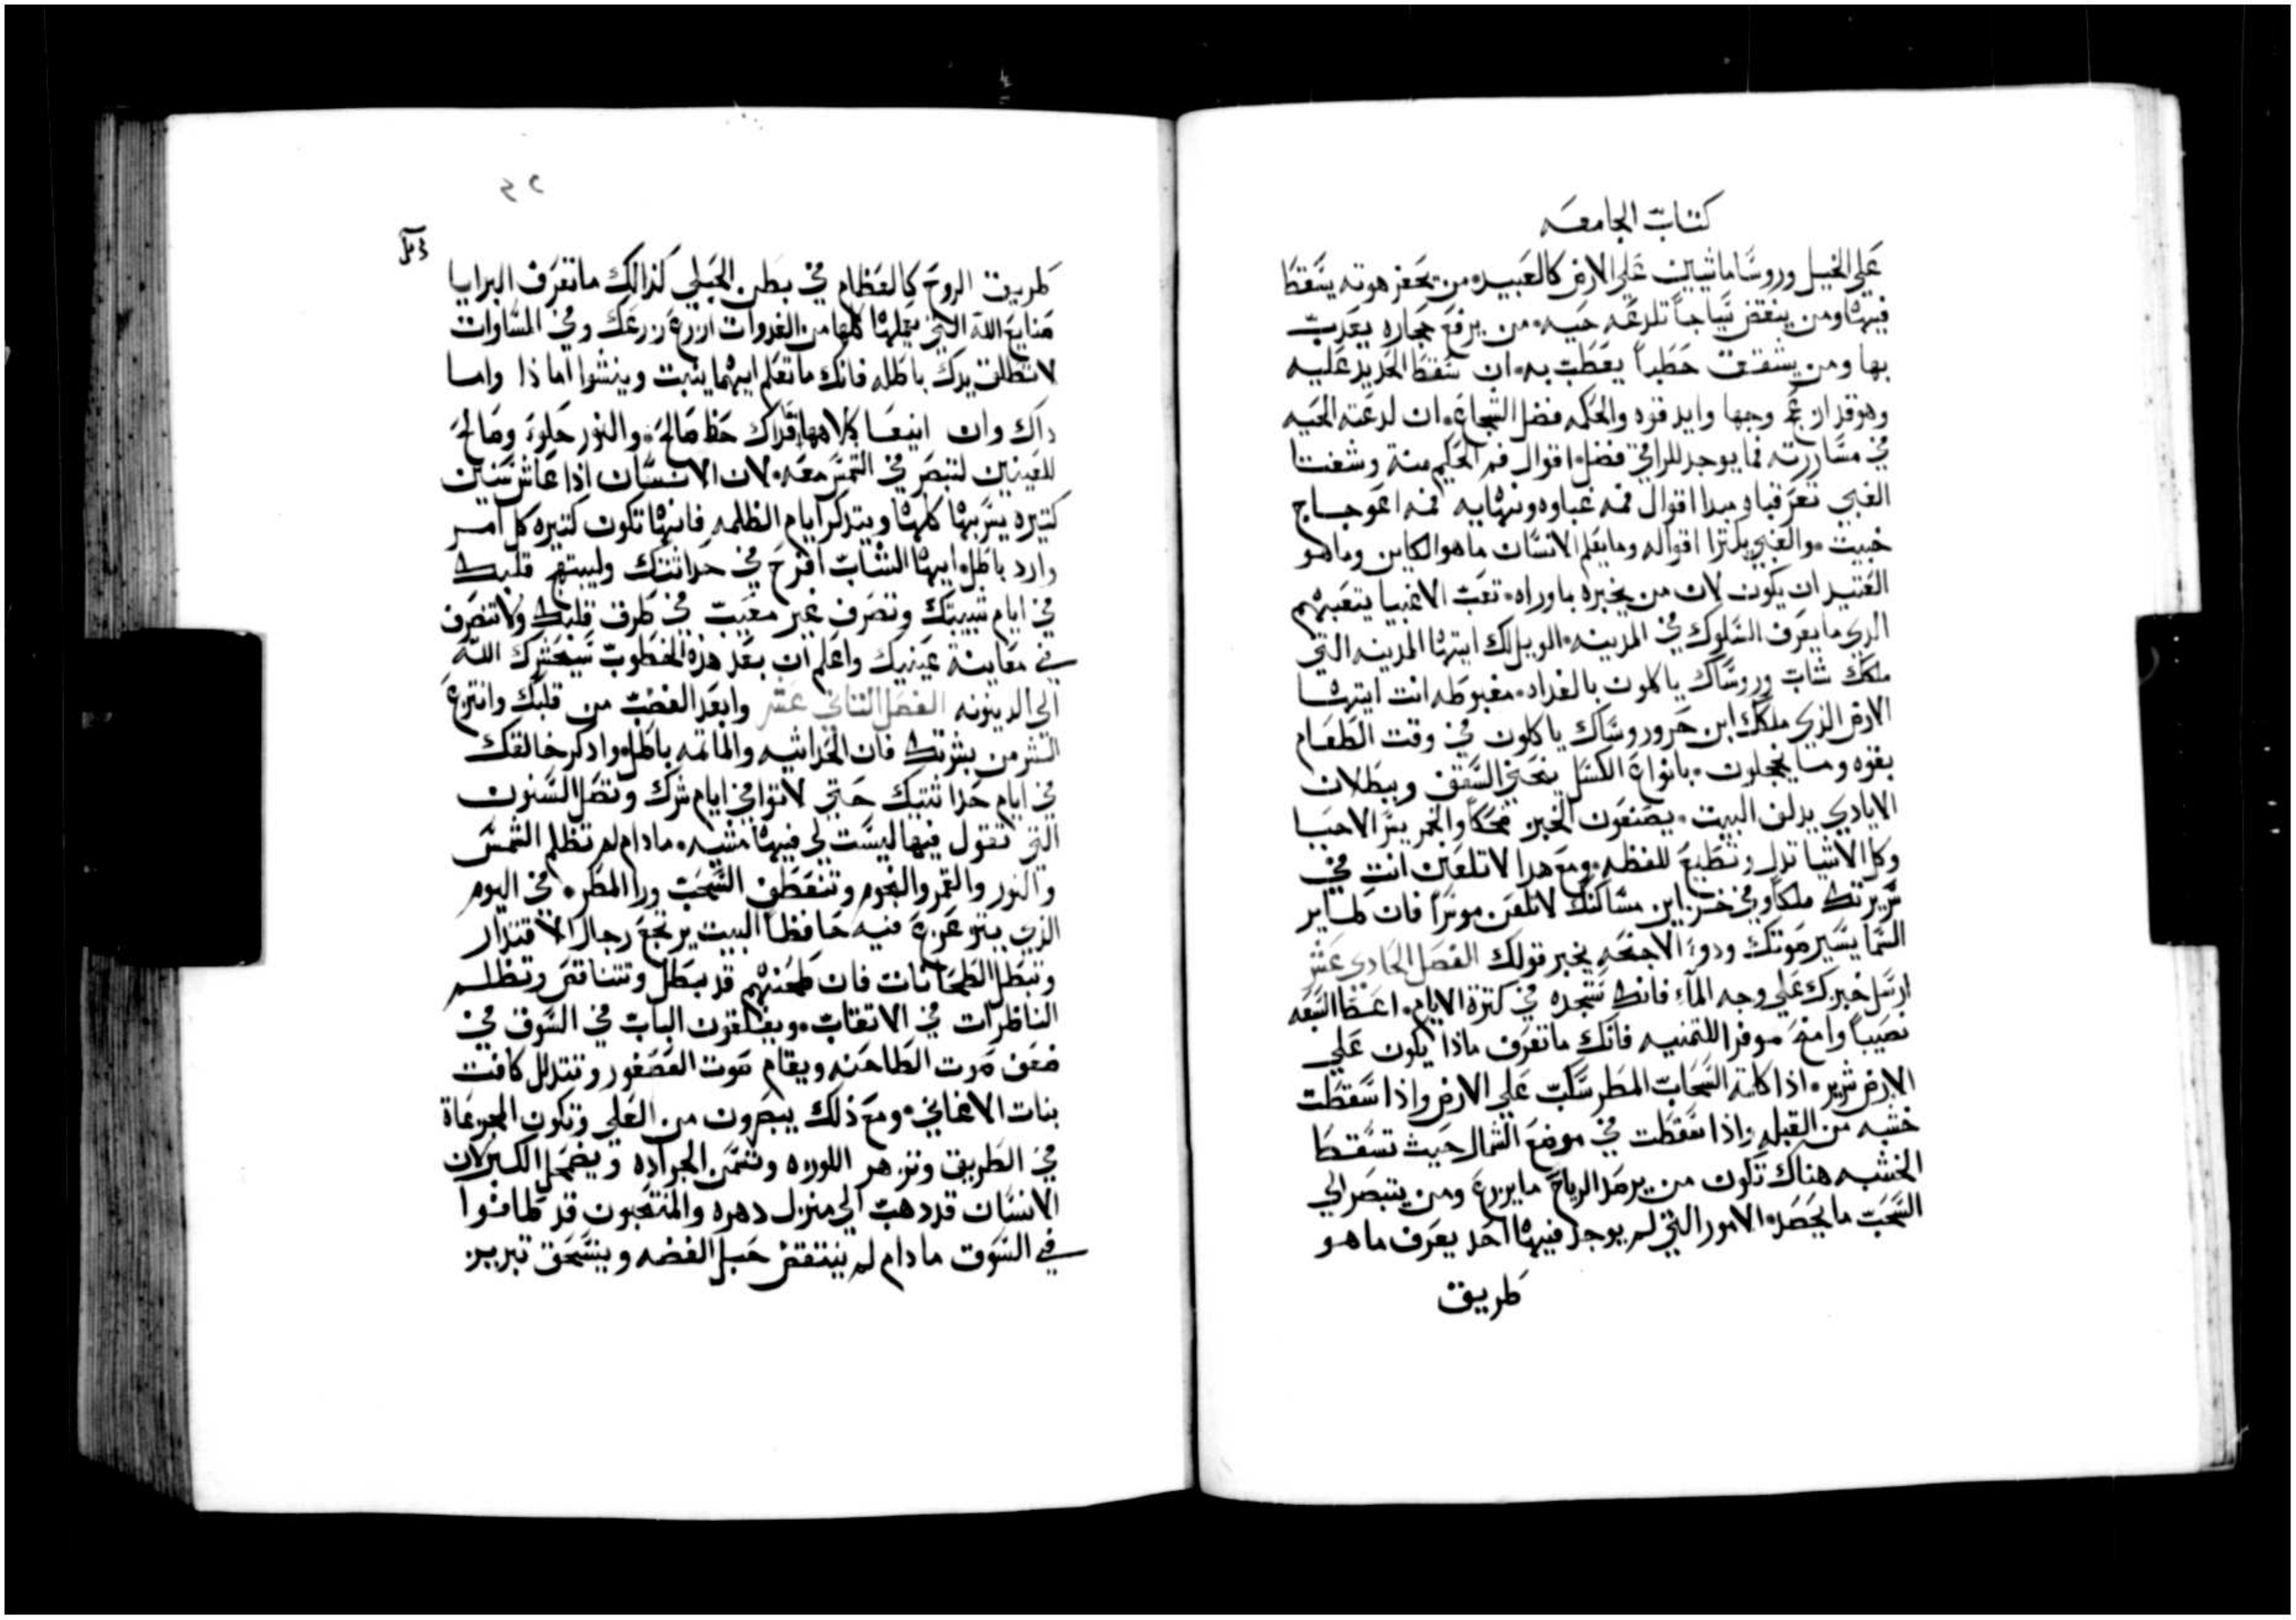 كتاب الجامعه
علي الخيل وروسًا ماشيين علي الارض كالعبيد۰ من يحفر هوته يسقط
فيها ومن ينقض سياجاً تلدغه حيه۰ من يرفع حجاره يعدب
بها ومن يشقق حطباً يعطب به۰ ان سقط الحديد عليه
وهو قد ازعج وجها وايد قوه والحكمه فضل الشجاع۰ ان لدغته الحيه
في مساررته فما يوجد للراقي فضل۰ اقوال فم الحكيم منة وشفتا
الغبي تغرقاه مبدا اقوال فمه غباوه ونهايه فمه اعوجاج
خبيت۰ والغبي يكترا اقواله وما يعلم الانسان ما هو الكاين وما هو
العتيد ان يكون لان من يخبره بما وراه۰ تعب الاغبيا يتعبهم
الدي ما يعرف السلوك في المدينه۰ الويل لك ايتها المدينه التي
ملكك شاب وروساك ياكلون بالغداه۰ مغبوطه انت ايتها
الارض الذي ملكك ابن حر وروساك ياكلون في وقت الطعام
بقوه وما يخجلون۰ بانواع الكسل ينحني السقف وببطلات
الايادي يدلف البيت۰ يصنعون الخبز ضحكاً والخمر يسر الاحيا
وكل الاشيا تدل وتطيع للفظه۰ ومع هدا لا تلعن انت في
سريرتك ملكا وفي خزاين مساكنك لا تلعن موسراً فان طاير
السما يسير صوتك ودو الاجنحه يخبر قولك الفصل الحادي عشر
ارسل خبزك علي وجه الماء فانك ستجده في كترة الايام۰ اعط السبعه
نصيباً وامنح موفراً للتمنيه فانك ما تعرف ماذا يكون علي
الارض شرير۰ اذا كانة السحاب المطر سكب علي الارض واذا سقطت
خشبه من القبله واذا سقطت في موضع الشمال حيث تسقط
الخشبه هناك تكون من يرصد الرياح ما يزرع ومن يتبصر الي
السحب ما يحصد۰ الامور التي لم يوجد فيها احد يعرف ما هو
طريق
٤٢
طريق الروح كالعظام في بطن الحبلي كذالك ما تعرف البرايا
صنايع الله التي يعملها كلها من الغدوات ازرع زرعك وفي المساوات
لا تطلق يدك باطله فانك ما تعلم ايهما ينبت وينشوا اما ذا واما
داك وان اينعا كلاهما فداك حظ صالح۰ والنور حلوة وصالح
للعينين لتبصر في الشمس معه۰ لان الانسان اذا عاش سنين
كتيره يسر بها كلها ويتدكر ايام الظلمه فانها تكون كتيره كل امر
وارد باطل۰ ايها الشاب افرح في حداتتك وليبتهج قلبك
في ايام شبيبتك وتصرف غير معيب في طرق قلبك ولا تتصرف
في معاينة عينيك واعلم ان بعد هده الخطوب سيحشرك الله
الي الدينونه الفصل التاني عشر وابعد الغضب من قلبك وانتزع
الشر من بشرتك فان الحداثيه والماتمه باطل۰ وادكر خالقك
في ايام حداثتيك حتي لا توافي ايام شرك وتصل السنون
التي تقول فيها ليست لي فيها مشيه۰ ما دام لم تظلم الشمس
والنور والقمر والنجوم وتنعطف السحب ورا المطر۰ في اليوم
الذي يتزعزع فيه حافظا البيت يرتجع رجال الاقتدار
وتبطل الطحانات فان طحنهم قد بطل وتتناقص وتظلم
الناظرات في الاتقاب۰ ويغلقون الباب في السوق في
ضعف صوت الطاحنه ويقام صوت العصفور وتتدلل كافت
بنات الاغاني۰ ومع ذلك يبصرون من العلي وتكون الجزعاة
في الطريق وتزهر اللوزه وتسمن الجراده ويضمحل الكبر لان
الانسان قد دهب الي منزل دهره والمنتحبون قد طافوا
في السوق ما دام لم ينتقض حبل الفضه وينسحق تبريز